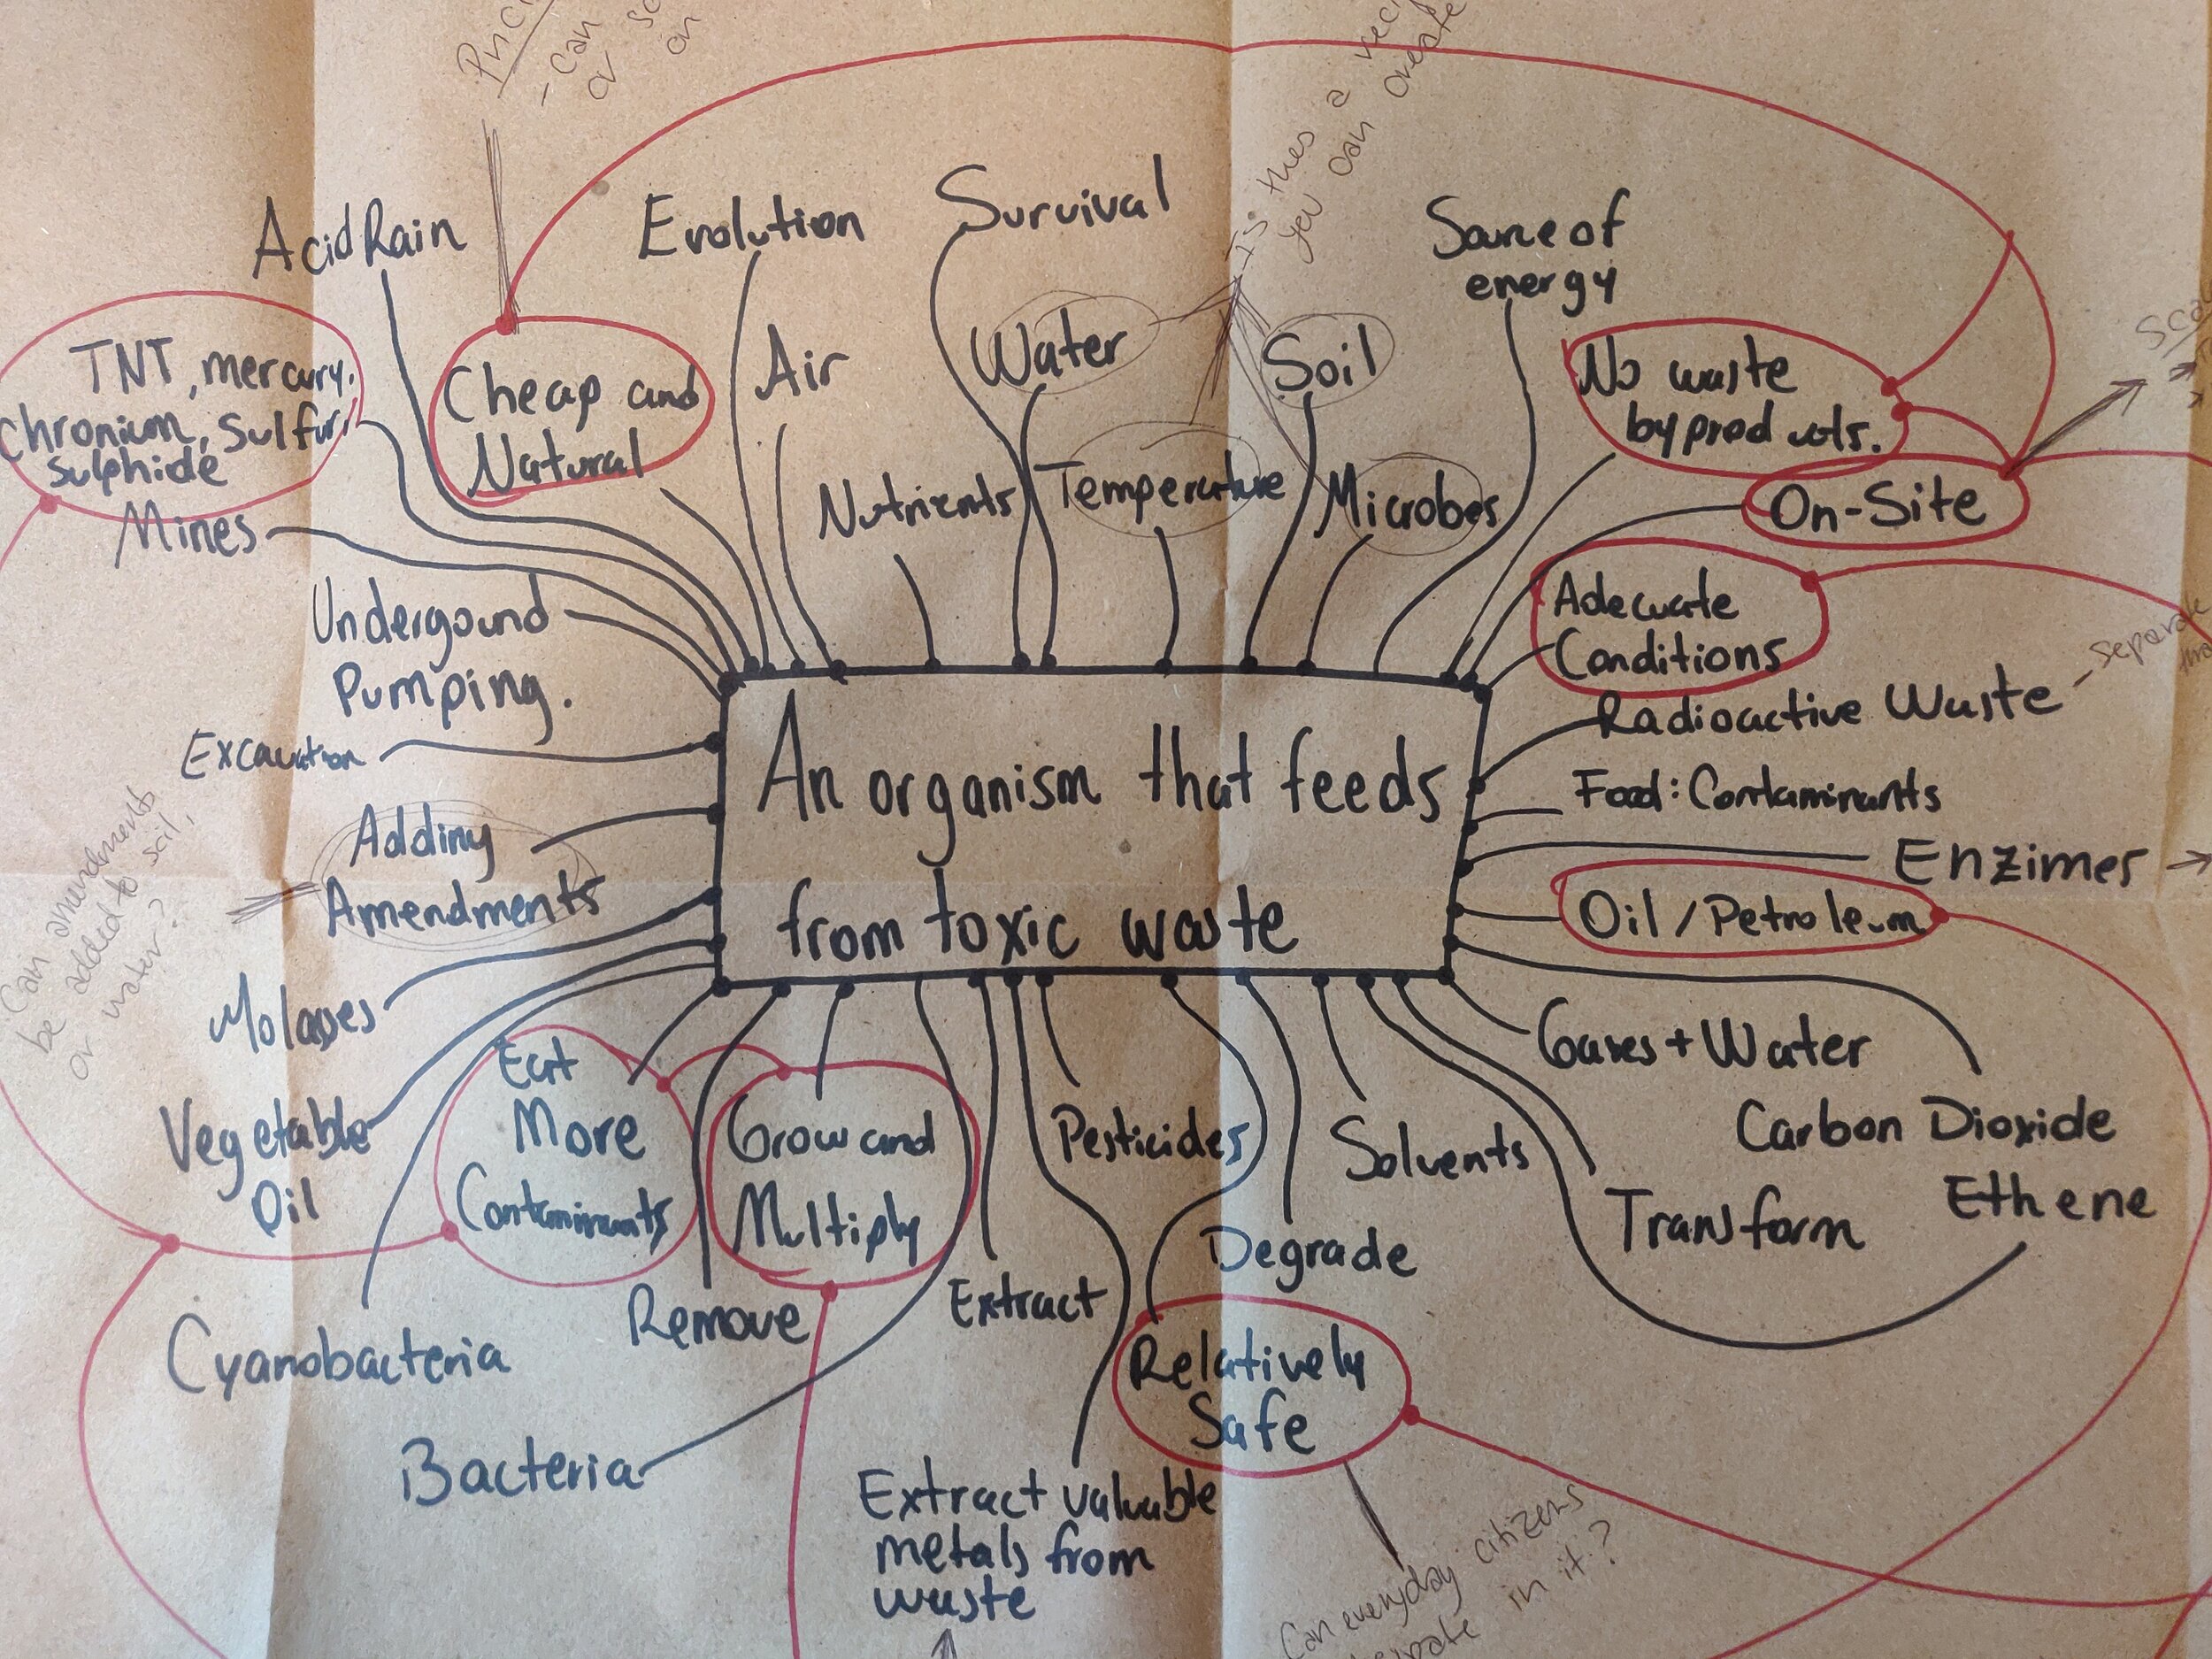 - Can
or
on
Is thes a
you can create
Acid Rain
Evolution
Survival
Source of
energy
TNT, mercury,
chronium, Sulfur,
Sulphide
Cheap and
Natural
Air
Water
Soil
No waste
byproducts.
Nutrients
Temperature
Microbes
On-Site
Mines
Undergound
Pumping.
Adecuate
Conditions
Radioactive Waste
Excavation
Food: Contaminants
Adding
Amendments
An organism that feeds
from toxic waste
Enzimes
Oil / Petroleum
Can amendments
be added to soil,
or water?
Molasses
Vegetable
Oil
Eat
More
Contaminants
Grow and
Multiply
Pesticides
Solvents
Gases + Water
Carbon Dioxide
Ethene
Transform
Degrade
Remove
Extract
Cyanobacteria
Bacteria
Relatively
Safe
Extract valuable
metals from
waste
Can everyday citizens
in it?